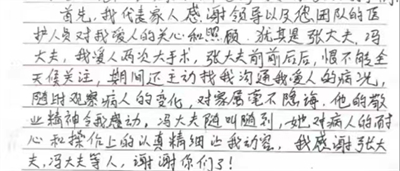 首先，我代表家人感谢领导以及您团队的医
护人员对我爱人的关心和照顾，尤其是张大夫、冯
大夫，我爱人两次大手术，张大夫前前后后，恨不能全
天候关注，期间还主动找我沟通我爱人的病况，
随时观察病人的变化，对家属毫不隐诲，他的敬
业精神令我感动，冯大夫随叫随到，她对病人的耐
心和操作上的认真精细让我动容，我感谢张大
夫、冯大夫等人，谢谢你们了！